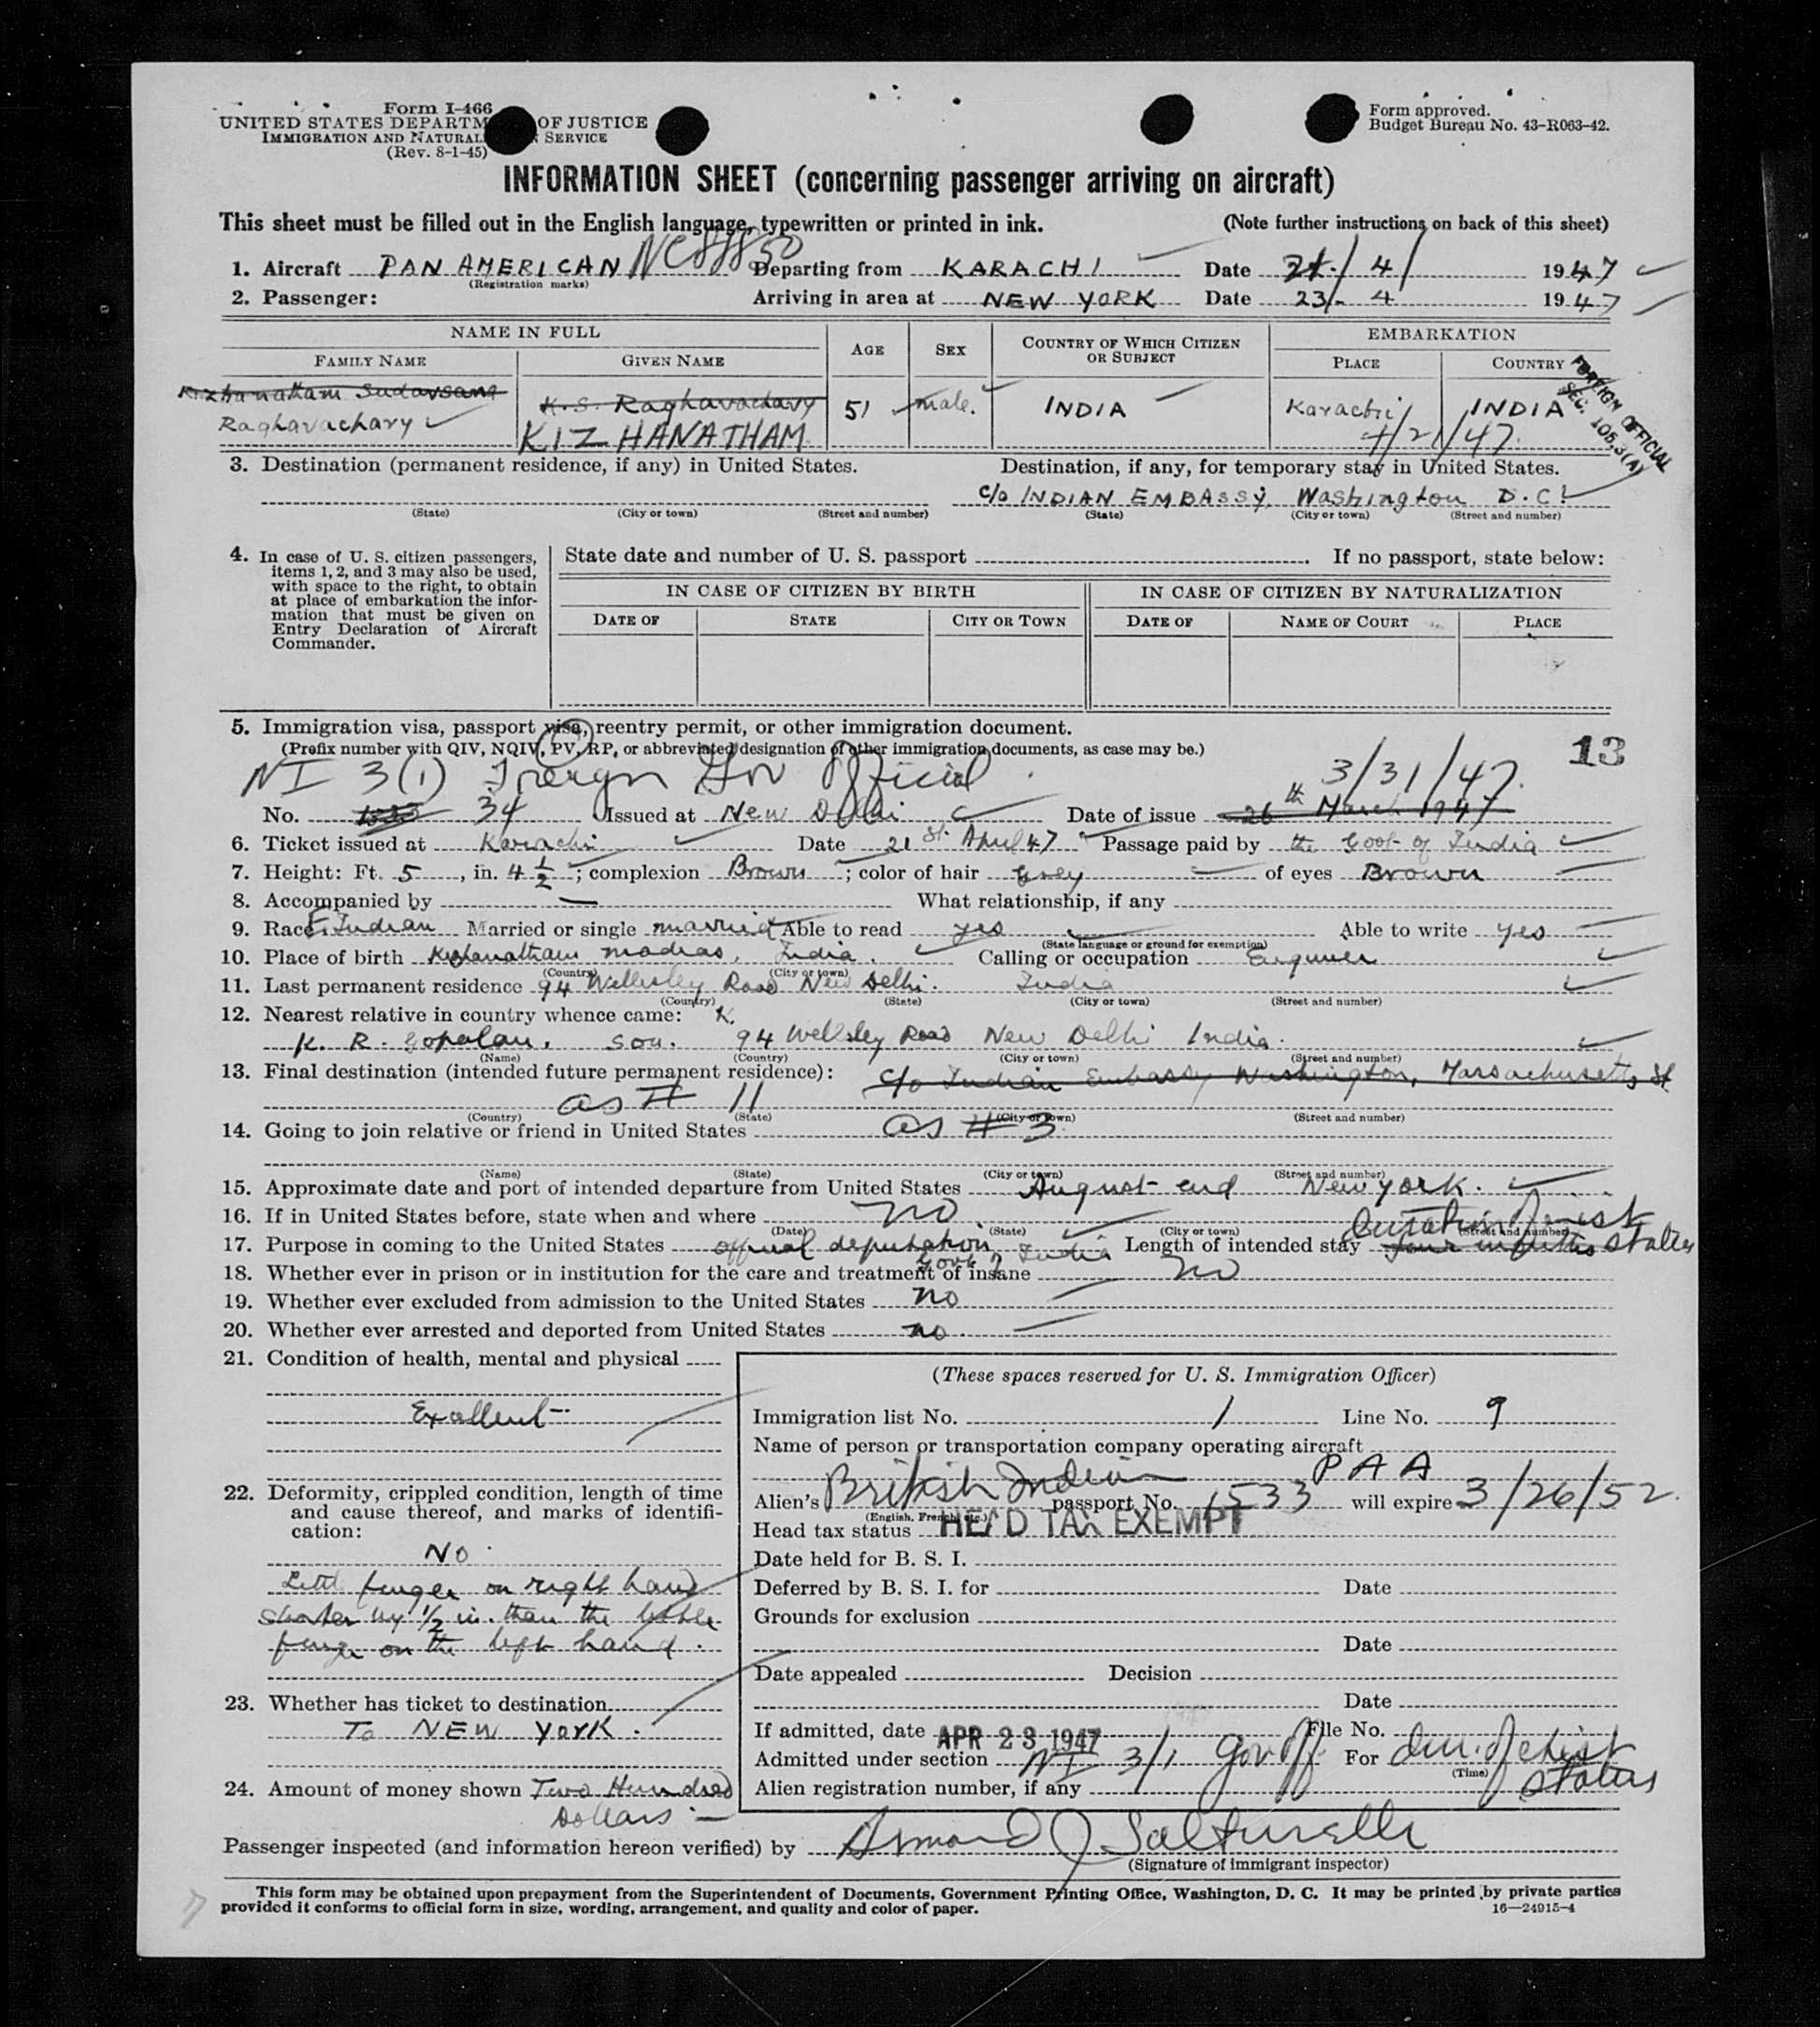 Form I-466
UNITED STATES DEPARTM OF JUSTICE
IMMIGRATION AND NATURAL SERVICE
(Rev. 8-1-45)
Form approved.
Budget Bureau No. 43-R063-42.
INFORMATION SHEET (concerning passenger arriving on aircraft)
This sheet must be filled out in the English language, typewritten or printed in ink. (Note further instructions on back of this sheet)
1. Aircraft PAN AMERICAN NC88850 Departing from KARACHI Date 21/4/ 1947
(Registration marks)
2. Passenger: Arriving in area at NEW YORK Date 23/- 4 1947
NAME IN FULL AGE SEX COUNTRY OF WHICH CITIZEN OR SUBJECT EMBARKATION
FAMILY NAME GIVEN NAME PLACE COUNTRY
Kizhanatham Sudarsana K.S. Raghavachary
Raghavachary KIZHANATHAM 51 male. INDIA Karachi INDIA
4/21/47.
FOREIGN OFFICIAL
SEC. 105.3(A)
3. Destination (permanent residence, if any) in United States. Destination, if any, for temporary stay in United States.
c/o INDIAN EMBASSY, Washington D.C.
(State) (City or town) (Street and number) (State) (City or town) (Street and number)
4. In case of U. S. citizen passengers, items 1, 2, and 3 may also be used, with space to the right, to obtain at place of embarkation the information that must be given on Entry Declaration of Aircraft Commander.
State date and number of U. S. passport If no passport, state below:
IN CASE OF CITIZEN BY BIRTH IN CASE OF CITIZEN BY NATURALIZATION
DATE OF STATE CITY OR TOWN DATE OF NAME OF COURT PLACE
5. Immigration visa, passport visa, reentry permit, or other immigration document.
(Prefix number with QIV, NQIV, PV, RP, or abbreviated designation of other immigration documents, as case may be.)
13
NI 3(1) Foreign Gov Official 3/31/47.
No. 1533 34 Issued at New Delhi Date of issue 26th March 1947
6. Ticket issued at Karachi Date 21st April 47 Passage paid by the Govt of India
7. Height: Ft. 5, in. 4 1/2; complexion Brown; color of hair Grey of eyes Brown
8. Accompanied by — What relationship, if any
9. Race E. Indian Married or single married Able to read yes Able to write yes
(State language or ground for exemption)
10. Place of birth Kizhanatham madras, India. Calling or occupation Engineer
(Country) (City or town)
11. Last permanent residence 94 Wellesley Road New Delhi. India
(Country) (State) (City or town) (Street and number)
12. Nearest relative in country whence came: K.
K. R. Gopalan, son. 94 Wellsley Road New Delhi India.
(Name) (Country) (City or town) (Street and number)
13. Final destination (intended future permanent residence): c/o Indian Embassy Washington, Massachusetts St
as # 11
(Country) (State) (City or town) (Street and number)
14. Going to join relative or friend in United States as #3
(Name) (State) (City or town) (Street and number)
15. Approximate date and port of intended departure from United States August end New York.
16. If in United States before, state when and where no.
(Date) (State) (City or town) (Street and number)
17. Purpose in coming to the United States official deputation, Govt of India Length of intended stay four months duration of exist status
18. Whether ever in prison or in institution for the care and treatment of insane no
19. Whether ever excluded from admission to the United States no
20. Whether ever arrested and deported from United States no.
21. Condition of health, mental and physical
Exellent
22. Deformity, crippled condition, length of time and cause thereof, and marks of identification:
No
Littl finger on right hand
shorter by 1/2 in. than the little
finger on the left hand.
23. Whether has ticket to destination
To NEW YORK.
24. Amount of money shown Two Hundred
Dollars.—
(These spaces reserved for U. S. Immigration Officer)
Immigration list No. 1 Line No. 9
Name of person or transportation company operating aircraft
PAA
Alien's British Indian passport No. 1533 will expire 3/26/52.
(English, French, etc.)
Head tax status HEAD TAX EXEMPT
Date held for B. S. I.
Deferred by B. S. I. for Date
Grounds for exclusion
Date
Date appealed Decision
Date
If admitted, date APR 23 1947 File No.
Admitted under section NI 3/1 Gov. Off. For dur. of exist status
(Time)
Alien registration number, if any
Passenger inspected (and information hereon verified) by Armand J Salturelli
(Signature of immigrant inspector)
This form may be obtained upon prepayment from the Superintendent of Documents, Government Printing Office, Washington, D. C. It may be printed by private parties
provided it conforms to official form in size, wording, arrangement, and quality and color of paper. 16—24915-4